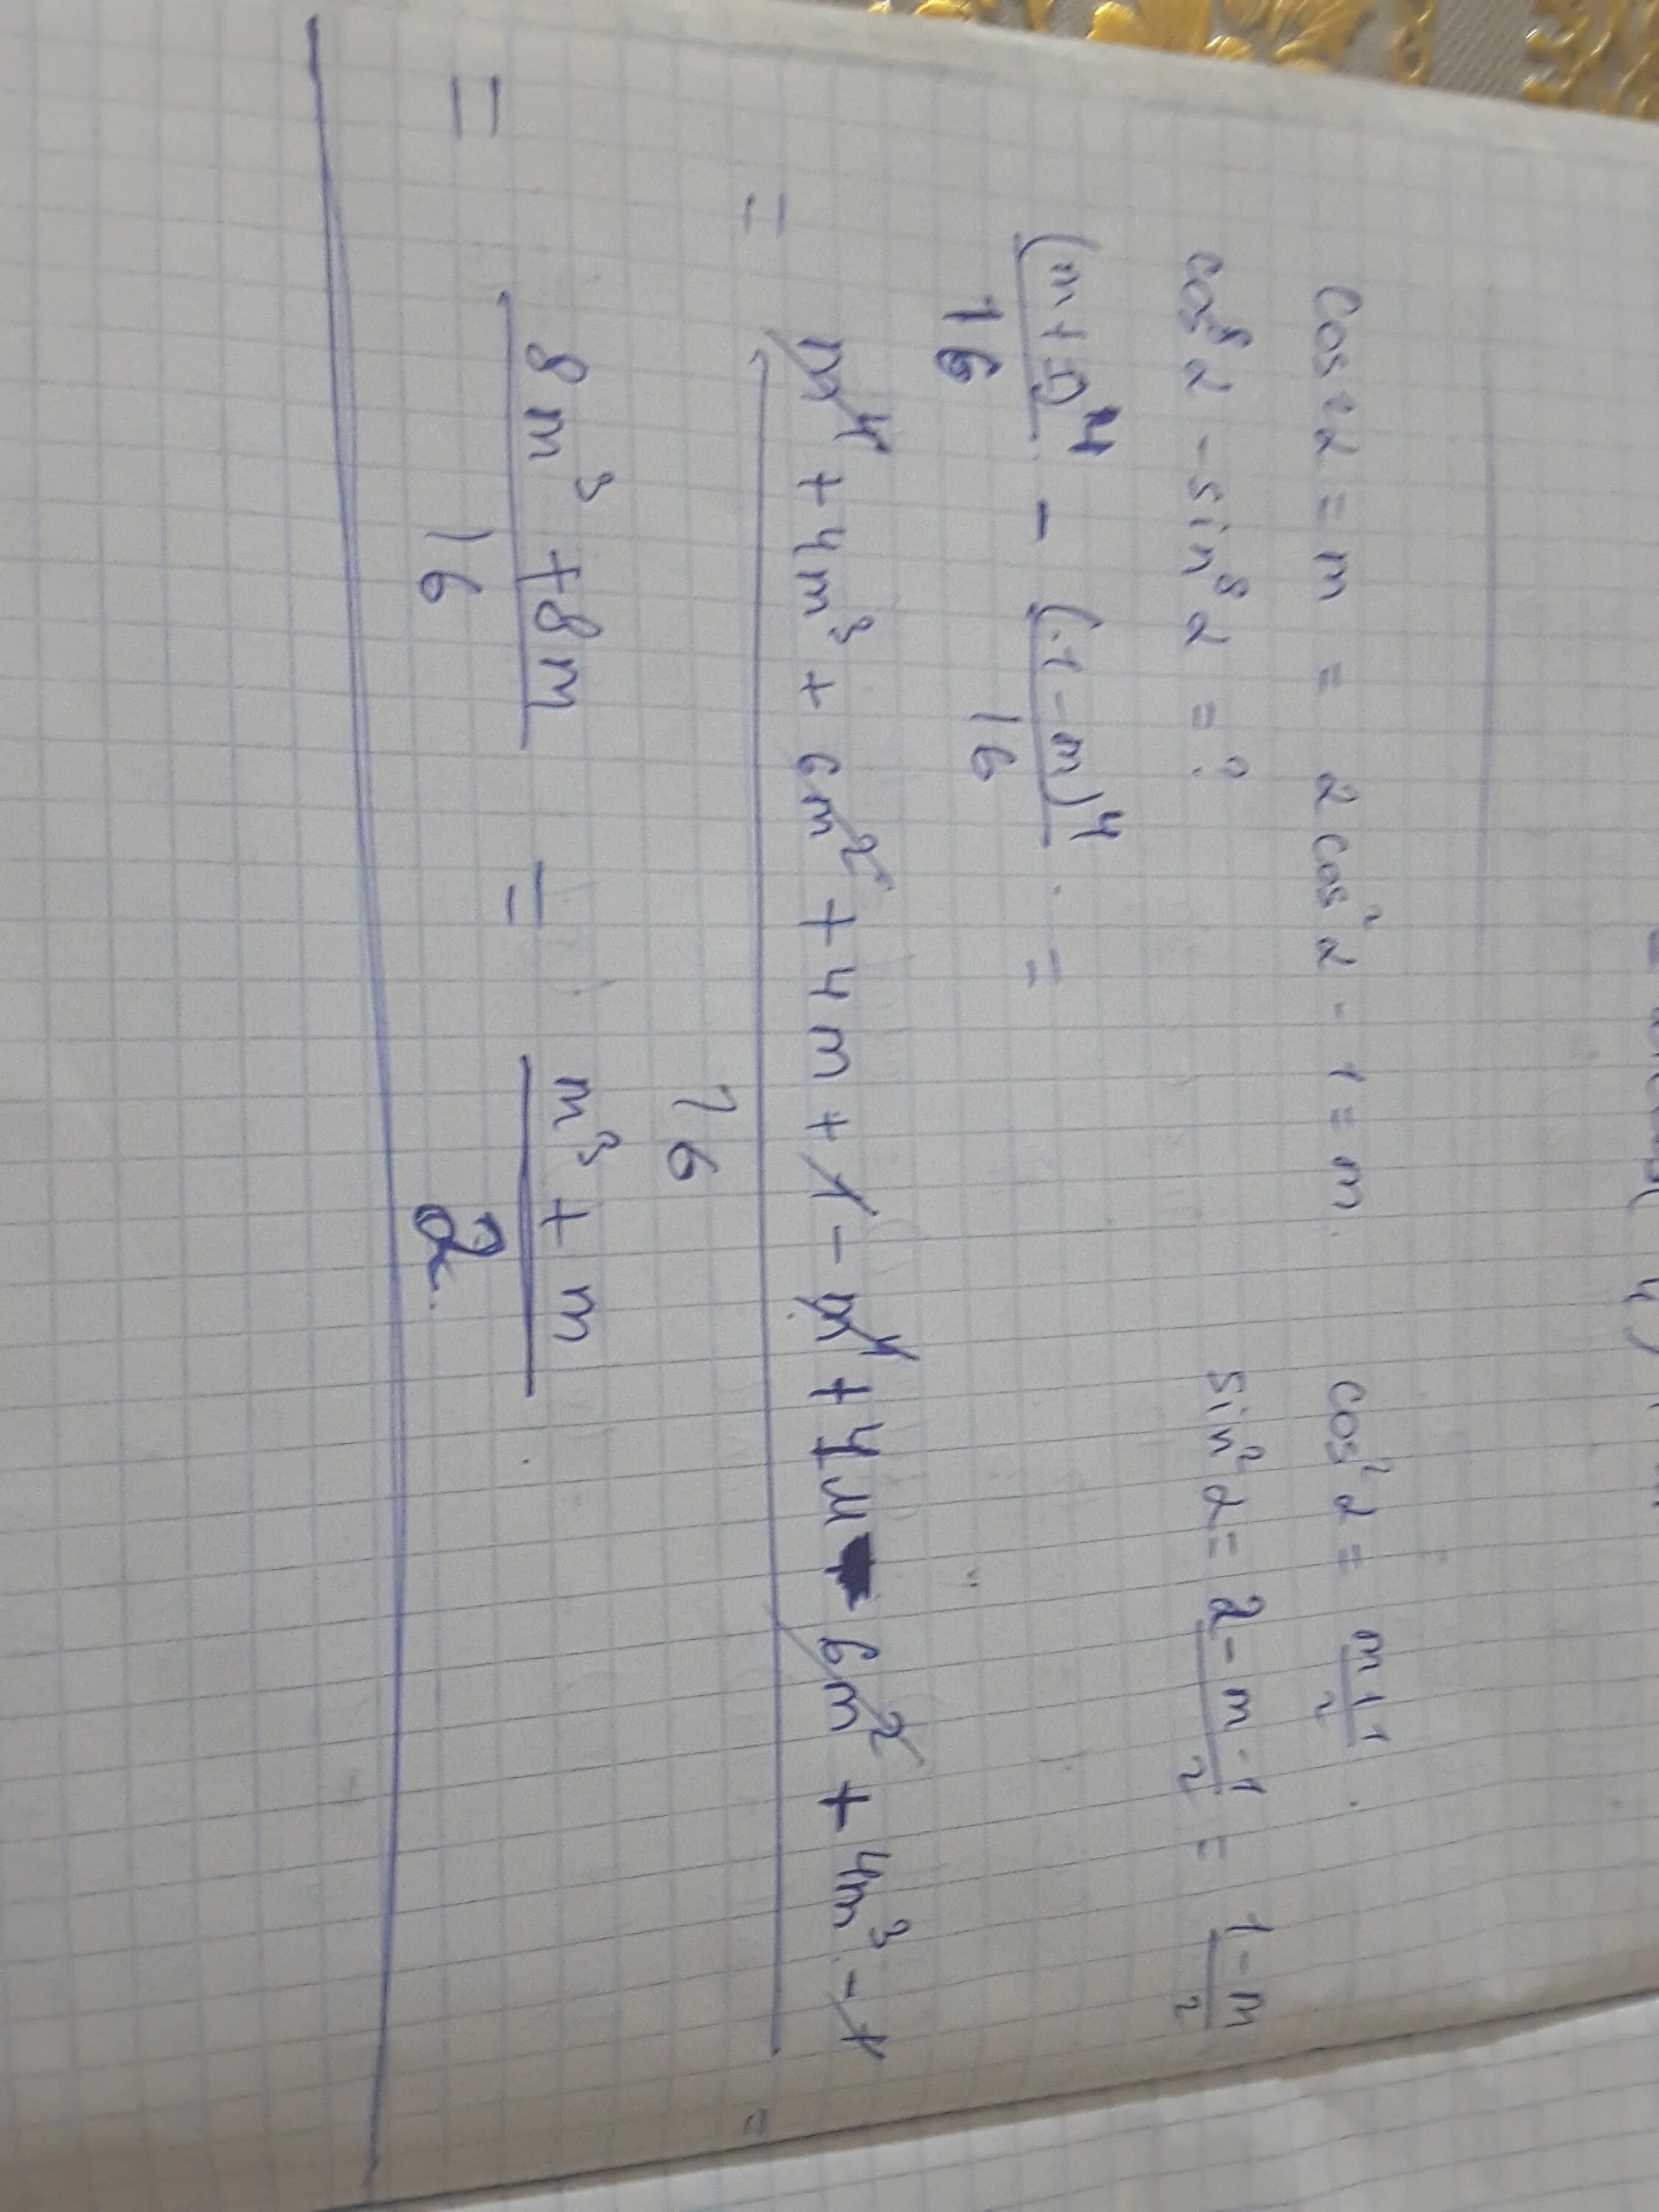 cos 2α = m = 2cos²α - 1 = m. cos²α = (m+1)/2.
cos⁸α - sin⁸α = ? sin²α = (2-m-1)/2 = (1-m)/2
(m+1)⁴/16 - (1-m)⁴/16 =
= (m⁴ + 4m³ + 6m² + 4m + 1 - m⁴ + 4m - 6m² + 4m³ - 1)/16 =
= (8m³ + 8m)/16 = (m³ + m)/2.